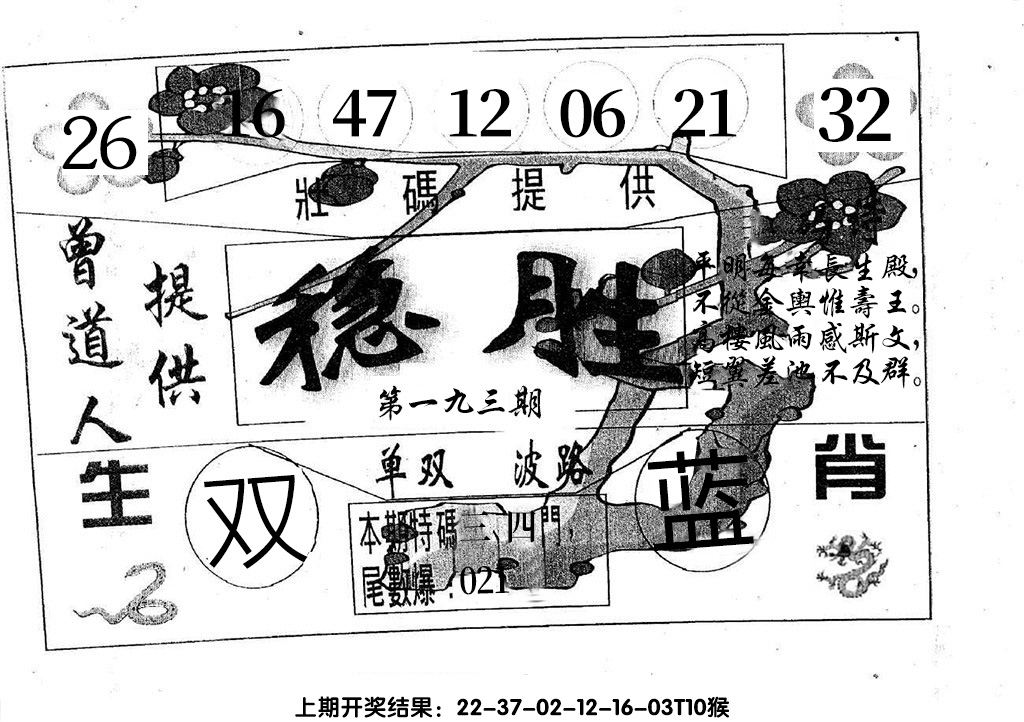 26 16 47 12 06 21 32
壯碼提供
特
曾道人
提供
稳胜
第一九三期
平明每幸長生殿，
不從金輿惟壽王。
高樓風雨感斯文，
短翼差池不及群。
单双 波路
生肖
双
蓝
本期特碼三、四門，
尾數爆：021
上期开奖结果：22-37-02-12-16-03T10猴